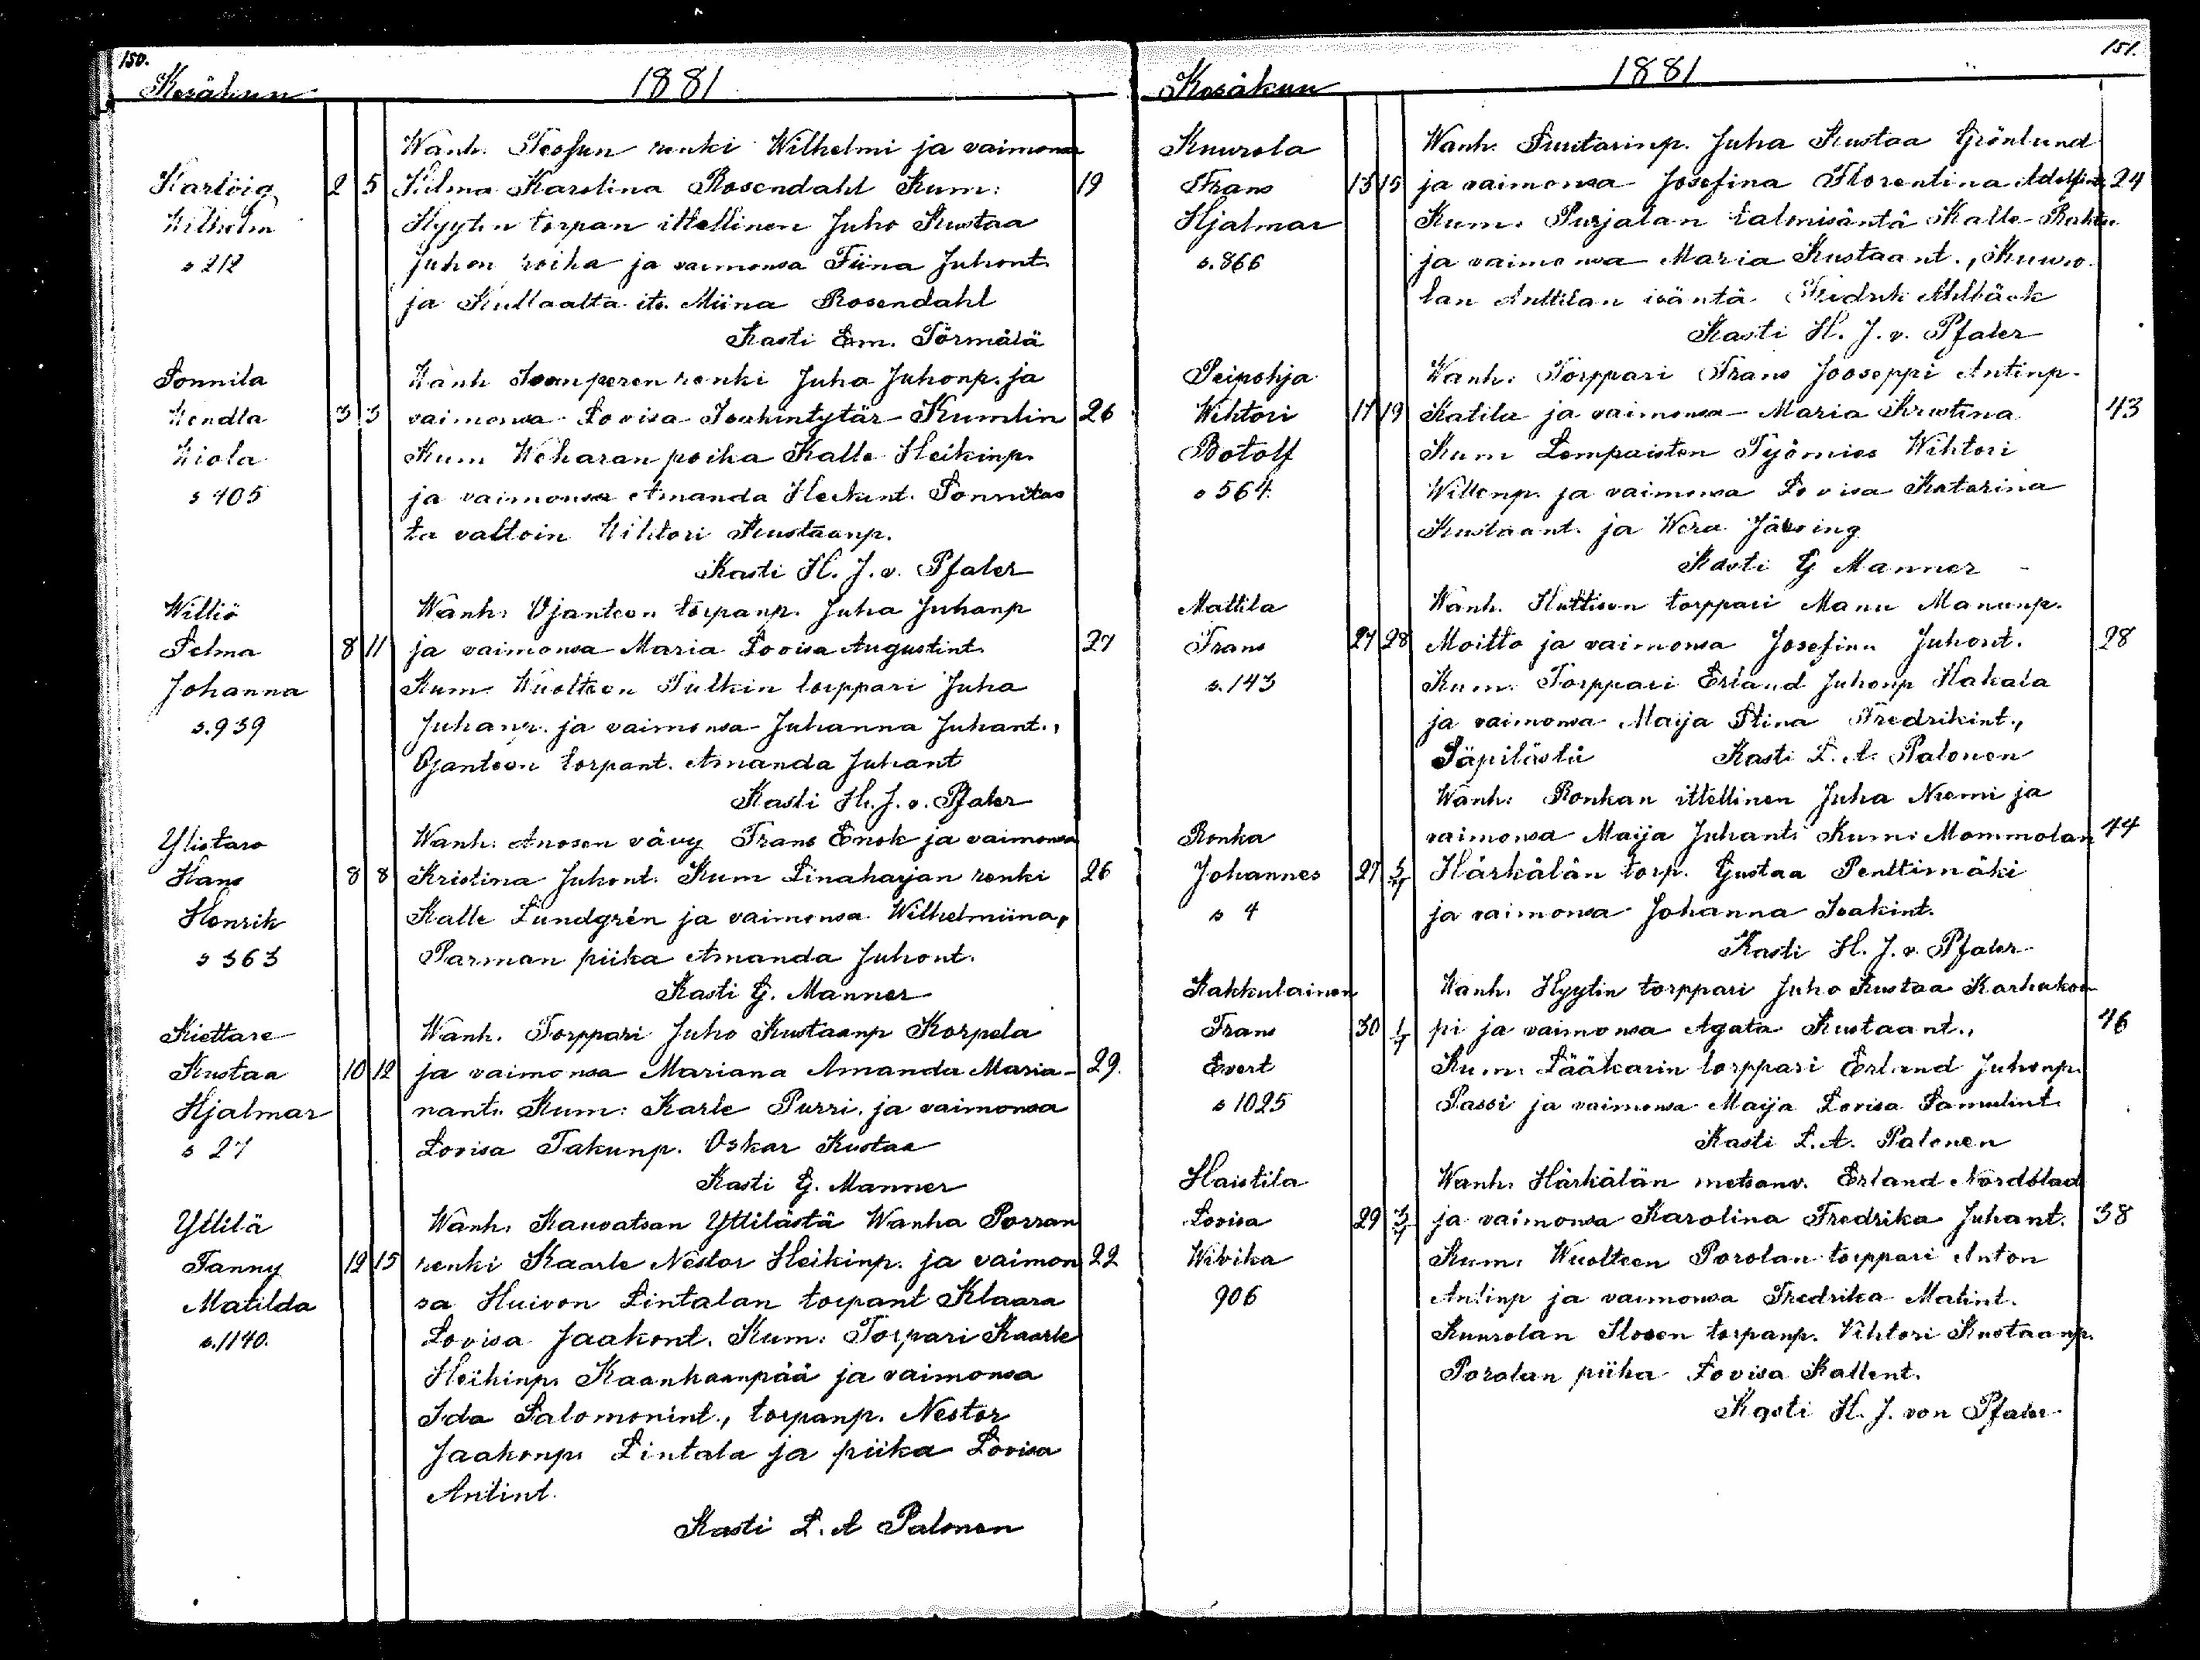 150.
Kesäkun 1881
Wanh. renki Wilhelmi ja vaimonsa
Karlöig 2 5 Karolina Rosendahl Kum: 19
Wilhelm Hyytin torpan ittellinen Juho Kustaa
s 212 Juhon ja vaimonsa Tiina Juhont.
ja Kullaalta its. Miina Rosendahl
Kasti Em. Törmälä
Sonnila Wanh renki Juha Juhonp. ja
Hendla 3 3 vaimonsa Lovisa Joakintytär Kumlin 26
Kum Weharan poika Kalle Heikinp.
s 405 ja vaimonsa Amanda Heikint. Sonnilas
ta valtoin Wihtori Kustaanp.
Kasti H. J. v. Pfaler
Williö Wanh: Ojanteen torpanp. Juha Juhanp
Selma 8 11 ja vaimonsa Maria Lovisa Augustint. 27
Johanna Kum. Wuolteen Tulkin torppari Juha
s. 939 Juhanp. ja vaimonsa Juhanna Juhant.,
Ojanteen torpant. Amanda Juhant
Kasti H. J. v. Pfaler
Ylistaro Wanh: Anosen vävy Frans Enok ja vaimonsa
Hans 8 8 Kristina Juhont. Kum Linaharjan renki 26
Henrik Kalle Lundgrén ja vaimonsa Wilhelmiina,
s 363 Parman piika Amanda Juhont.
Kasti G. Manner
Kiettare Wanh. Torppari Juho Kustaanp Korpela
Kustaa 10 12 ja vaimonsa Mariana Amanda Maria- 29.
Hjalmar nant. Kum: Karle Purri. ja vaimonsa
s 27 Lovisa Takunp. Oskar Kustaa
Kasti G. Manner
Yttilä Wanh. Kauvatsan Yttilästä Wanha Porran
Fanny 12 15 renki Kaarle Nestor Heikinp. ja vaimon 22
Matilda sa Huivon Lintalan torpant Klaara
s. 1140. Lovisa Jaakont. Kum: Torpari Kaarle
Heikinp. Kaanhaanpää ja vaimonsa
Ida Salomonint., torpanp. Nestor
Jaakonp. Lintala ja piika Lovisa
Antint.
Kasti L. A Palonen
151.
Kesäkun 1881
Kuurola Wanh. Suutarinp. Juha Kustaa Grönlund
Frans 13 15 ja vaimonsa Josefina Florentina Adolfint 24
Hjalmar Kum. Purjalan talonisäntä Kalle
s. 866 ja vaimonsa Maria Kustaant., Kuuro
lan Anttilan isäntä Fredrik Ahlbäck
Kasti H. J. v. Pfaler
Peipohja Wanh: Torppari Frans Jooseppi Antinp.
Wihtori 17 19 Katila ja vaimonsa Maria Kristina 43
Botolf Kum Lempaisten Työmies Wihtori
s 564. Willenp. ja vaimonsa Lovisa Katarina
Kustaant. ja Wera
Kasti G Manner
Mattila Wanh. Huttisen torppari Manu Manunp.
Frans 27 28 Moitto ja vaimonsa Josefina Juhont. 28
s. 143 Kum. Torppari Erland Juhonp Hakala
ja vaimonsa Maija Stina Fredrikint.,
Säpilästä Kasti L. A. Palonen
Wanh: Ronkan ittellinen Juha Niemi ja
Ronka vaimonsa Maija Juhant: Kum: Mommolan 44
Johannes 27 3/7 Härkälän torp. Gustaa Penttimäki
s 4 ja vaimonsa Johanna Joakint.
Kasti H. J. v. Pfaler
Kakkulainen Wanh. Hyytin torppari Juho Kustaa Karhukor
Frans 30 1/7 pi ja vaimonsa Agata Kustaant., 46
Evert Kum. Lääkärin torppari Erland Juhonp.
s 1025 Passi ja vaimonsa Maija Lovisa Samulint.
Kasti L. A. Palonen
Haistila Wanh. Härkälän metsänv. Erland Nordblad
Lovisa 29 3/7 ja vaimonsa Karolina Fredrika Juhant. 38
Wibika Kum. Wuolteen Porolan torppari Anton
906 Antinp ja vaimonsa Fredrika Matint.
Kuurolan torpanp. Vihtori Kustaanp.
Porolan piika Lovisa Kallent.
Kasti H. J. von Pfaler